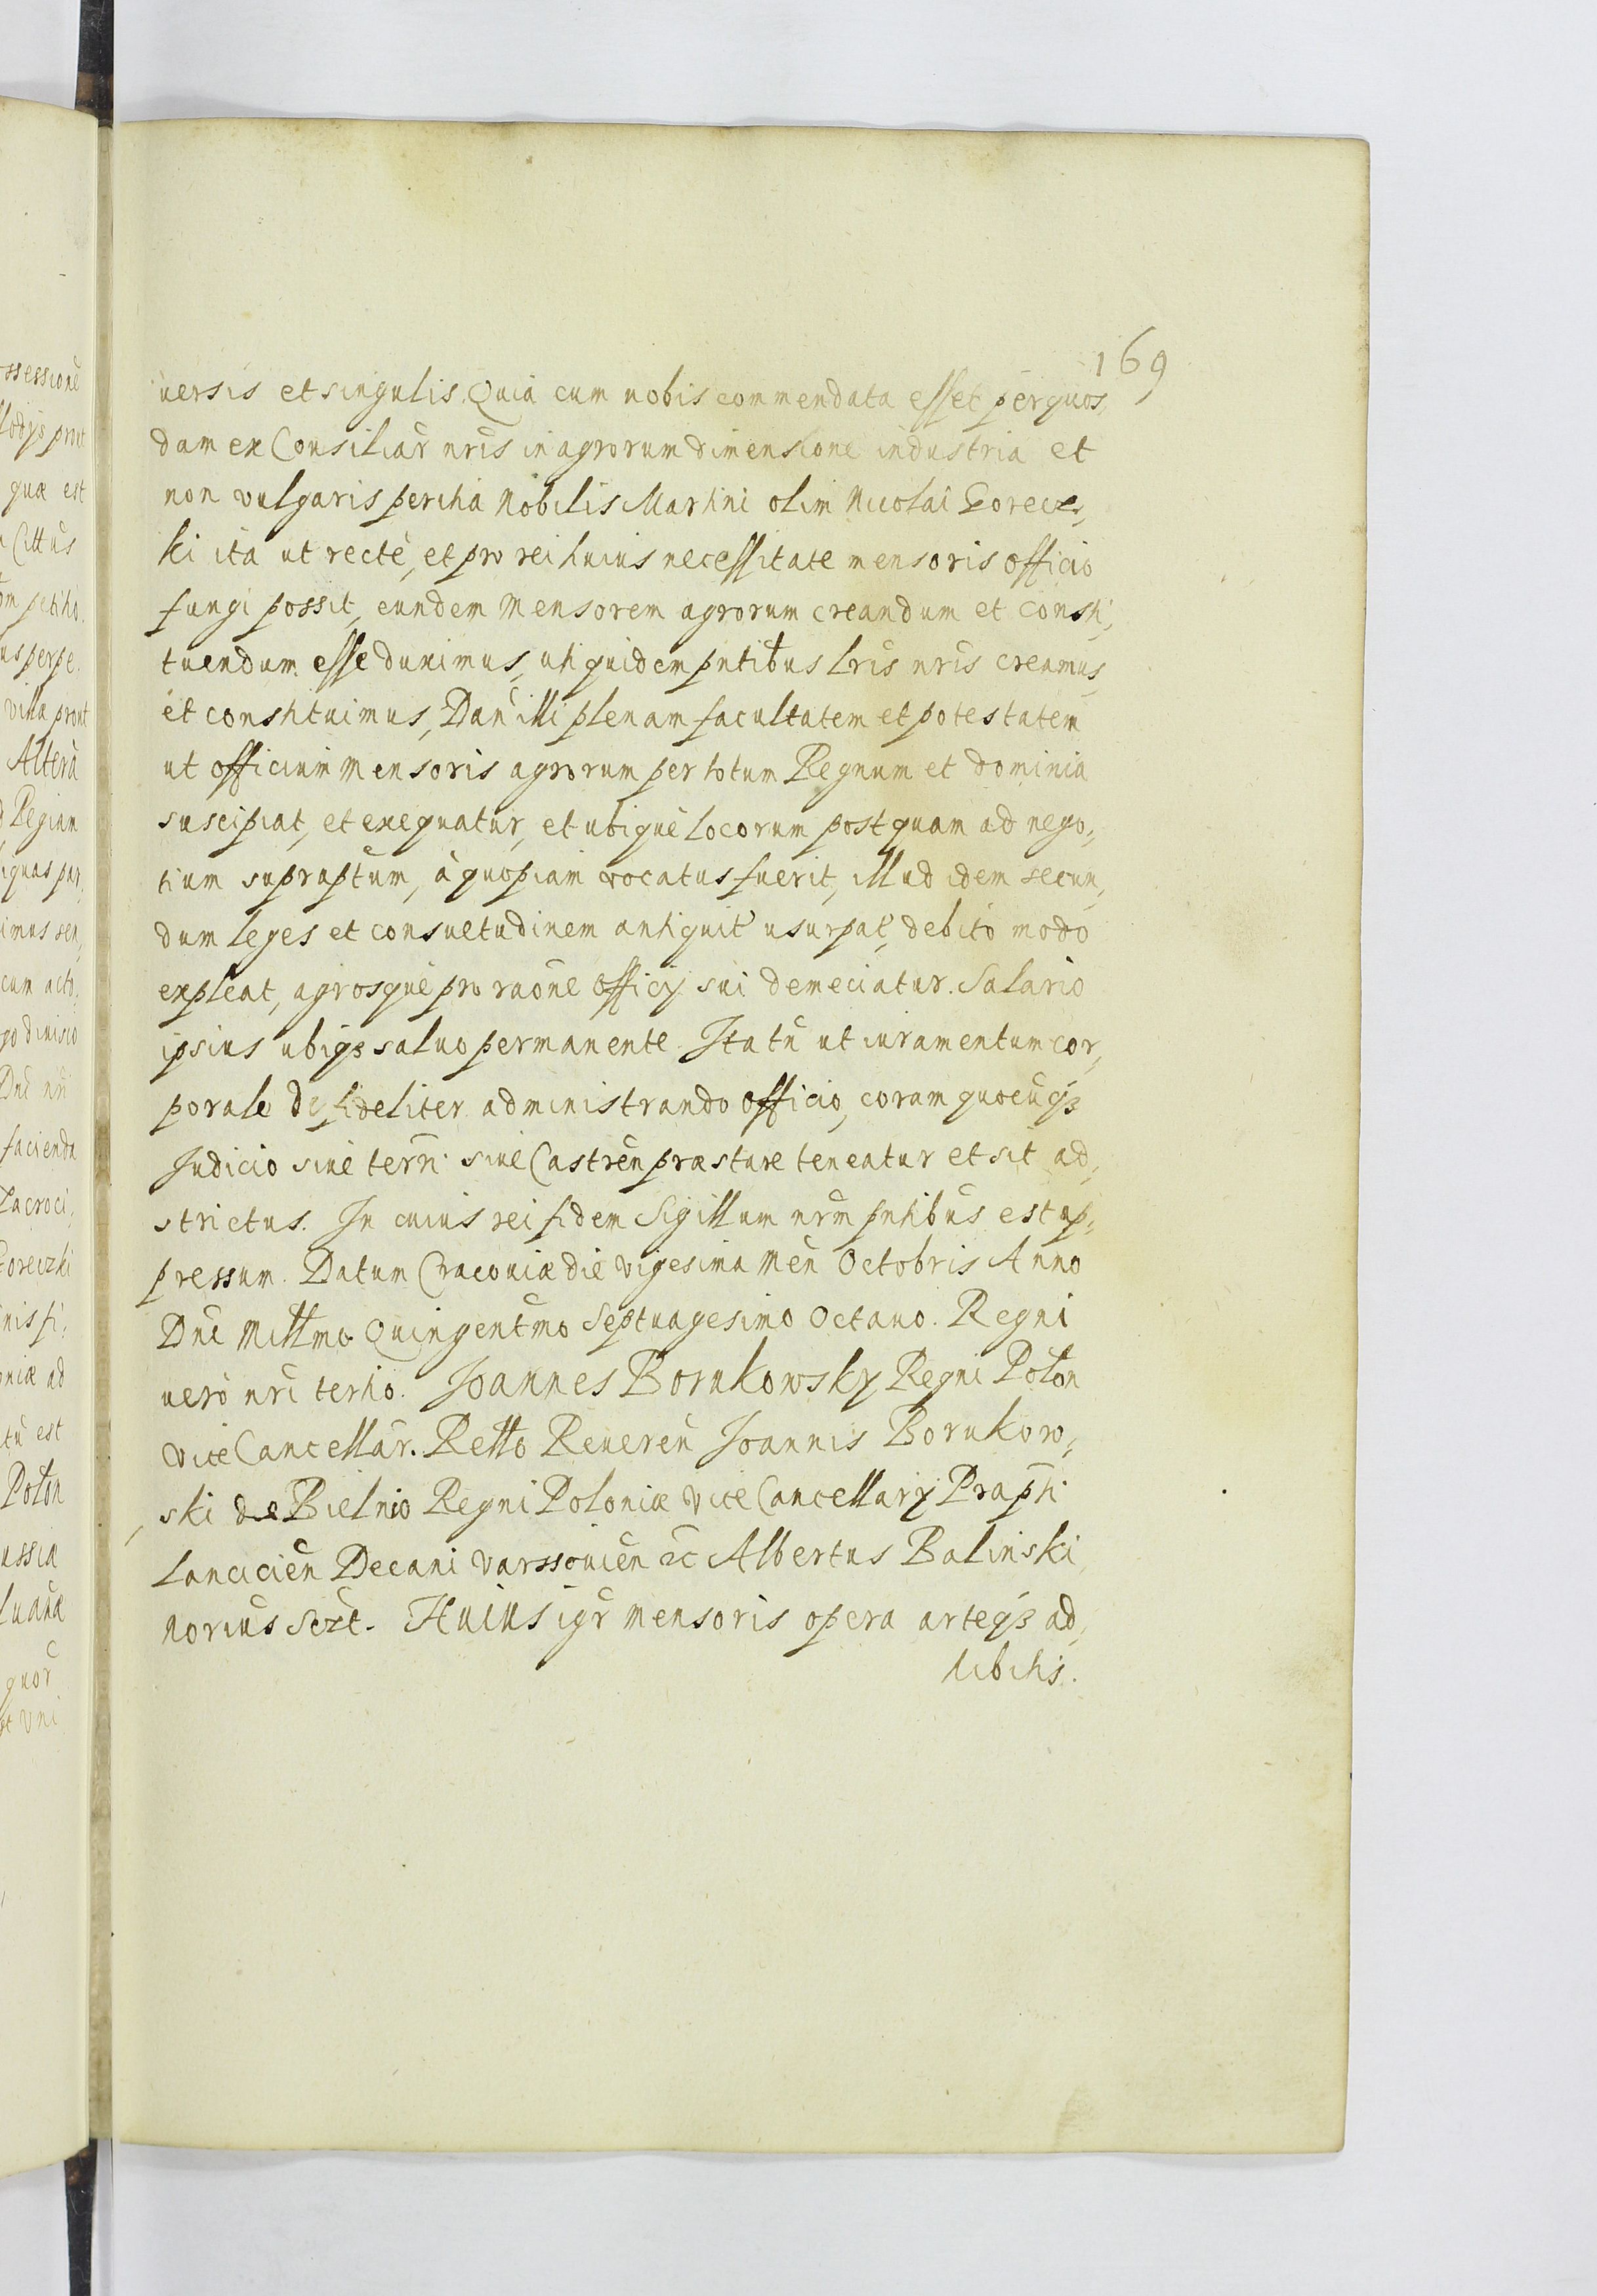 169
uersis et singulis. Quia cum nobis commendata esset per quos,
dam ex Consiliar nris in agrorum dimensione industria et
non vulgaris peritia Nobilis Martini olim Nicolai Gorecz,
ki ita ut recte, et pro rei huius necessitate mensoris officio
fungi possit, eundem Mensorem agrorum creandum et consti,
tuendum esse duximus, uti quidem pntibus Lris nris creamus,
et constituimus, Dan illi plenam facultatem et potestatem
ut officium Mensoris agrorum per totum Regnum et dominia
suscipiat, et exequatur, et ubique locorum postquam ad nego,
tium supraptum, à quopiam vocatus fuerit, illud idem secun,
dum leges et consuetudinem antiquit usurpat, debito modo
expleat, agrosque pro raone officij sui demeciatur. Salario
ipsius ubiqz saluo permanente. Ita tn ut iuramentum cor,
porale de fideliter administrando officio, coram quocuqz
Judicio siue terri siue Castren præstare teneatur et sit ad,
strictus. In cuius rei fidem Sigillum nrm pntibus est ap,
pressum. Datum Cracouiæ die vigesima Men Octobris Anno
Dni Millmo Quingentmo Septuagesimo Octauo. Regni
uero nri tertio. Joannes Bornkowsky Regni Polon
vice Cancellar. Rello Reueren Joannis Bornkow,
ski de Bielnio Regni Poloniæ vice Cancellarij Præpti
Lancicien Decani Varssouien &c Albertus Balinski
Norius Sczt. Huius igr mensoris opera arteqz ad,
hibitis.
ssessione
llodijs prout
quæ est
Cittus
petitio.
us perpe.
villa prout
Altera
Regiam
iquas par,
imus sen,
cum acto,
go diuisio
Dni nri
facienda
Lacroci,
Goreczki
nis fi,
niæ ad
tu est
Polon
ussiæ
luanæ
quor
et vni